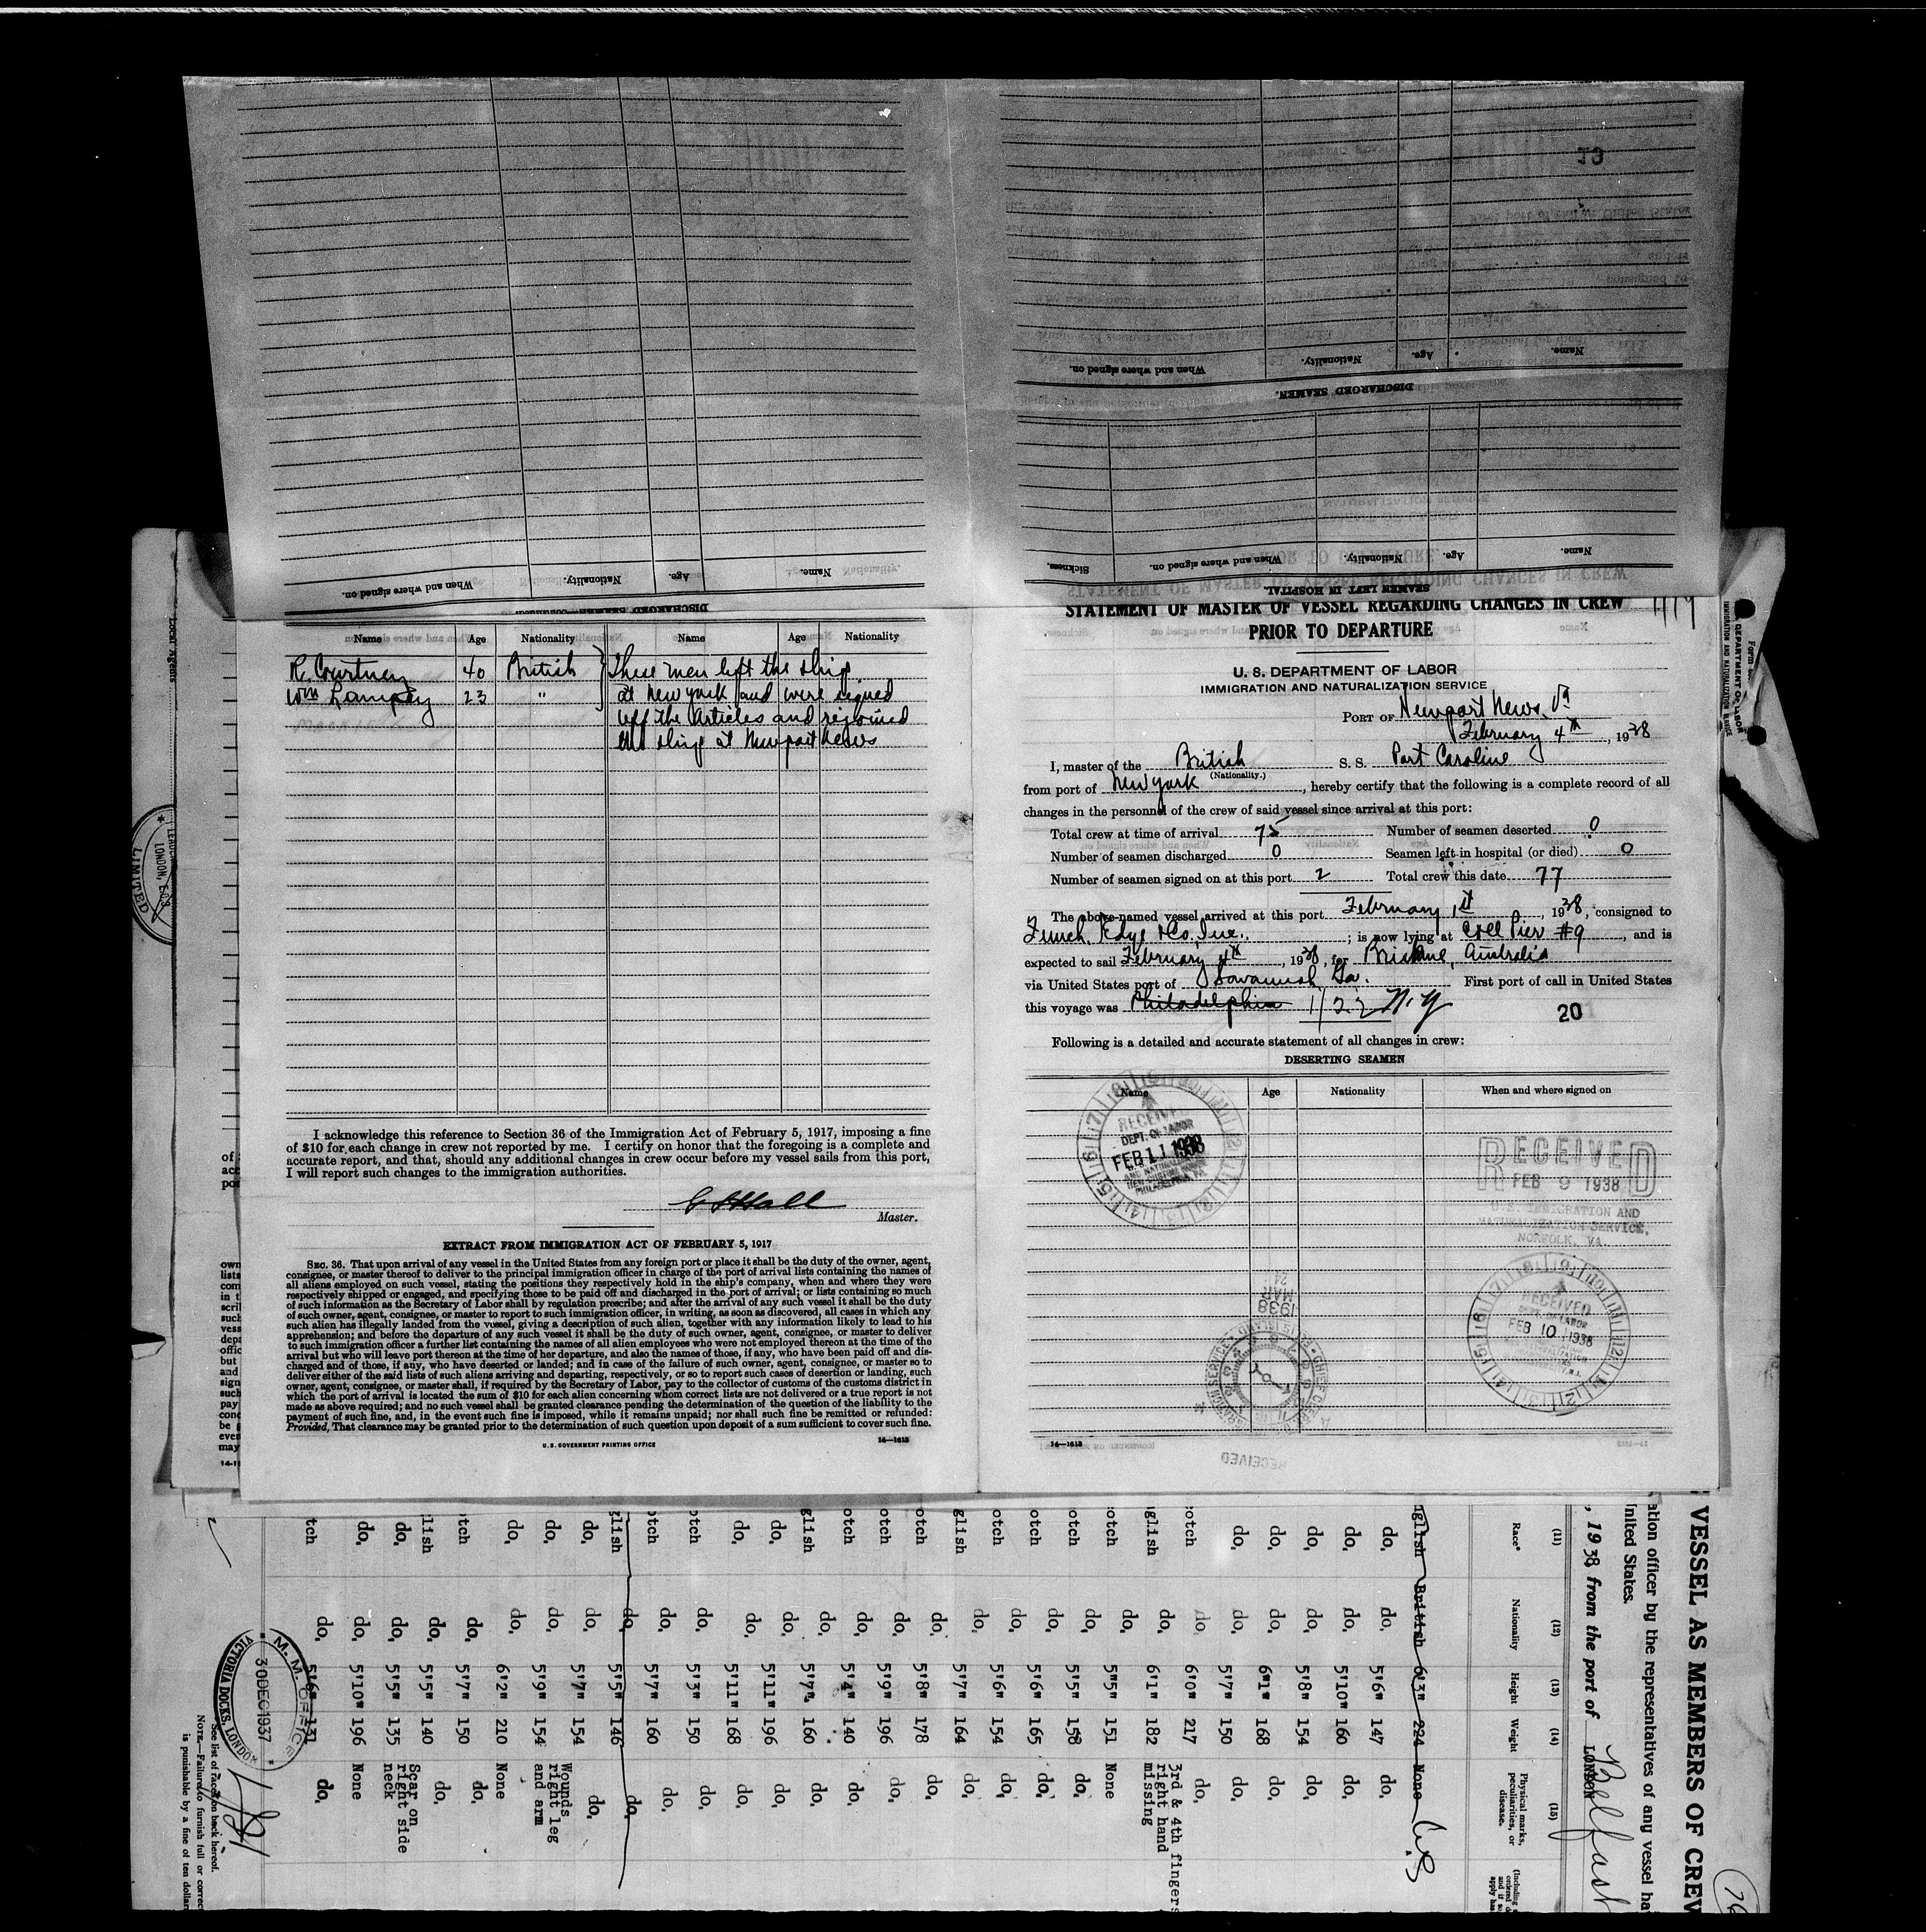 19
When and where signed on.
Nationality.
Age.
Name.
DISCHARGED SEAMEN.
Sickness.
When and where signed on.
Nationality.
Age.
Name.
SEAMEN LEFT IN HOSPITAL.
When and where signed on.
Nationality.
Age.
Name.
Name Age Nationality Name Age Nationality
R. Courtney 40 British These men left the ship
Wm Lampey 23 " at New York and were signed
off the Articles and rejoined
the ship at Newport News
I acknowledge this reference to Section 36 of the Immigration Act of February 5, 1917, imposing a fine
of $10 for each change in crew not reported by me. I certify on honor that the foregoing is a complete and
accurate report, and that, should any additional changes in crew occur before my vessel sails from this port,
I will report such changes to the immigration authorities.
Hall
Master.
EXTRACT FROM IMMIGRATION ACT OF FEBRUARY 5, 1917
SEC. 36. That upon arrival of any vessel in the United States from any foreign port or place it shall be the duty of the owner, agent,
consignee, or master thereof to deliver to the principal immigration officer in charge of the port of arrival lists containing the names of
all aliens employed on such vessel, stating the positions they respectively hold in the ship's company, when and where they were
respectively shipped or engaged, and specifying those to be paid off and discharged in the port of arrival; or lists containing so much
of such information as the Secretary of Labor shall by regulation prescribe; and after the arrival of any such vessel it shall be the duty
of such owner, agent, consignee, or master to report to such immigration officer, in writing, as soon as discovered, all cases in which any
such alien has illegally landed from the vessel, giving a description of such alien, together with any information likely to lead to his
apprehension; and before the departure of any such vessel it shall be the duty of such owner, agent, consignee, or master to deliver
to such immigration officer a further list containing the names of all alien employees who were not employed thereon at the time of the
arrival but who will leave port thereon at the time of her departure, and also the names of those, if any, who have been paid off and dis-
charged and of those, if any, who have deserted or landed; and in case of the failure of such owner, agent, consignee, or master so to
deliver either of the said lists of such aliens arriving and departing, respectively, or so to report such cases of desertion or landing, such
owner, agent, consignee, or master shall, if required by the Secretary of Labor, pay to the collector of customs of the customs district in
which the port of arrival is located the sum of $10 for each alien concerning whom correct lists are not delivered or a true report is not
made as above required; and no such vessel shall be granted clearance pending the determination of the question of the liability to the
payment of such fine, and, in the event such fine is imposed, while it remains unpaid; nor shall such fine be remitted or refunded:
Provided, That clearance may be granted prior to the determination of such question upon deposit of a sum sufficient to cover such fine.
U. S. GOVERNMENT PRINTING OFFICE 14—1618
STATEMENT OF MASTER OF VESSEL REGARDING CHANGES IN CREW
PRIOR TO DEPARTURE
U. S. DEPARTMENT OF LABOR
IMMIGRATION AND NATURALIZATION SERVICE
PORT OF Newport News, Va
February 4th, 1938
I, master of the British S. S. Port Caroline
(Nationality.)
from port of New York, hereby certify that the following is a complete record of all
changes in the personnel of the crew of said vessel since arrival at this port:
Total crew at time of arrival 75 Number of seamen deserted 0
Number of seamen discharged 0 Seamen left in hospital (or died) 0
Number of seamen signed on at this port 2 Total crew this date 77
The above-named vessel arrived at this port February 1st, 1938, consigned to
Funch, Edye & Co, Inc.; is now lying at Coll Pier #9, and is
expected to sail February 4th, 1938, for Brisbane, Australia
via United States port of Savannah Ga. First port of call in United States
this voyage was Philadelphia 1/22 N.Y
20
Following is a detailed and accurate statement of all changes in crew:
DESERTING SEAMEN
Name Age Nationality When and where signed on
RECEIVED
DEPT. OF LABOR
FEB 11 1938
PHILADELPHIA, PA
RECEIVED
FEB 9 1938
U. S. IMMIGRATION AND
NATURALIZATION SERVICE,
NORFOLK, VA.
MAR
24
1938
RECEIVED
FEB 10 1938
RECEIVED
14—1618
Local Agents
LONDON, E.C.3
LIMITED
VESSEL AS MEMBERS OF CREW
ation officer by the representatives of any vessel ha
nited States.
, 1938 from the port of LONDON Belfast
(11) (12) (13) (14) (15)
Race* Nationality Height Weight Physical marks, peculiarities, or disease.
nglish British 6'3" 224 None
do. do. 5'6" 147 do.
do. do. 5'10" 160 do.
do. do. 5'8" 154 do.
do. do. 6'1" 168 do.
do. do. 5'7" 150 do.
otch do. 6'0" 217 do.
glish do. 6'1" 182 3rd & 4th fingers right hand missing
otch do. 5'5" 151 None
otch do. 5'5" 158 do.
otch do. 5'6" 165 do.
otch do. 5'6" 154 do.
glish do. 5'7" 164 do.
otch do. 5'8" 178 do.
otch do. 5'9" 196 do.
otch do. 5'4" 140 do.
glish do. 5'7" 160 do.
do. do. 5'11" 196 do.
do. do. 5'11" 168 do.
otch do. 5'3" 150 do.
otch do. 5'7" 160 do.
glish do. 5'5" 146 do.
do. do. 5'7" 154 do.
do. do. 5'9" 154 Wounds right leg and arm
do. do. 6'2" 210 None
tch do. 5'7" 150 do.
lish do. 5'5" 140 do.
do. do. 5'5" 135 Scar on right side neck
do. do. 5'10" 196 None
tch do. 5'6" 131 do.
M. M. OFFICE
30DEC1937
VICTORIA DOCKS, LONDON
See list of races on back hereof.
NOTE.—Failure to furnish full or correc
is punishable by a fine of ten dollar